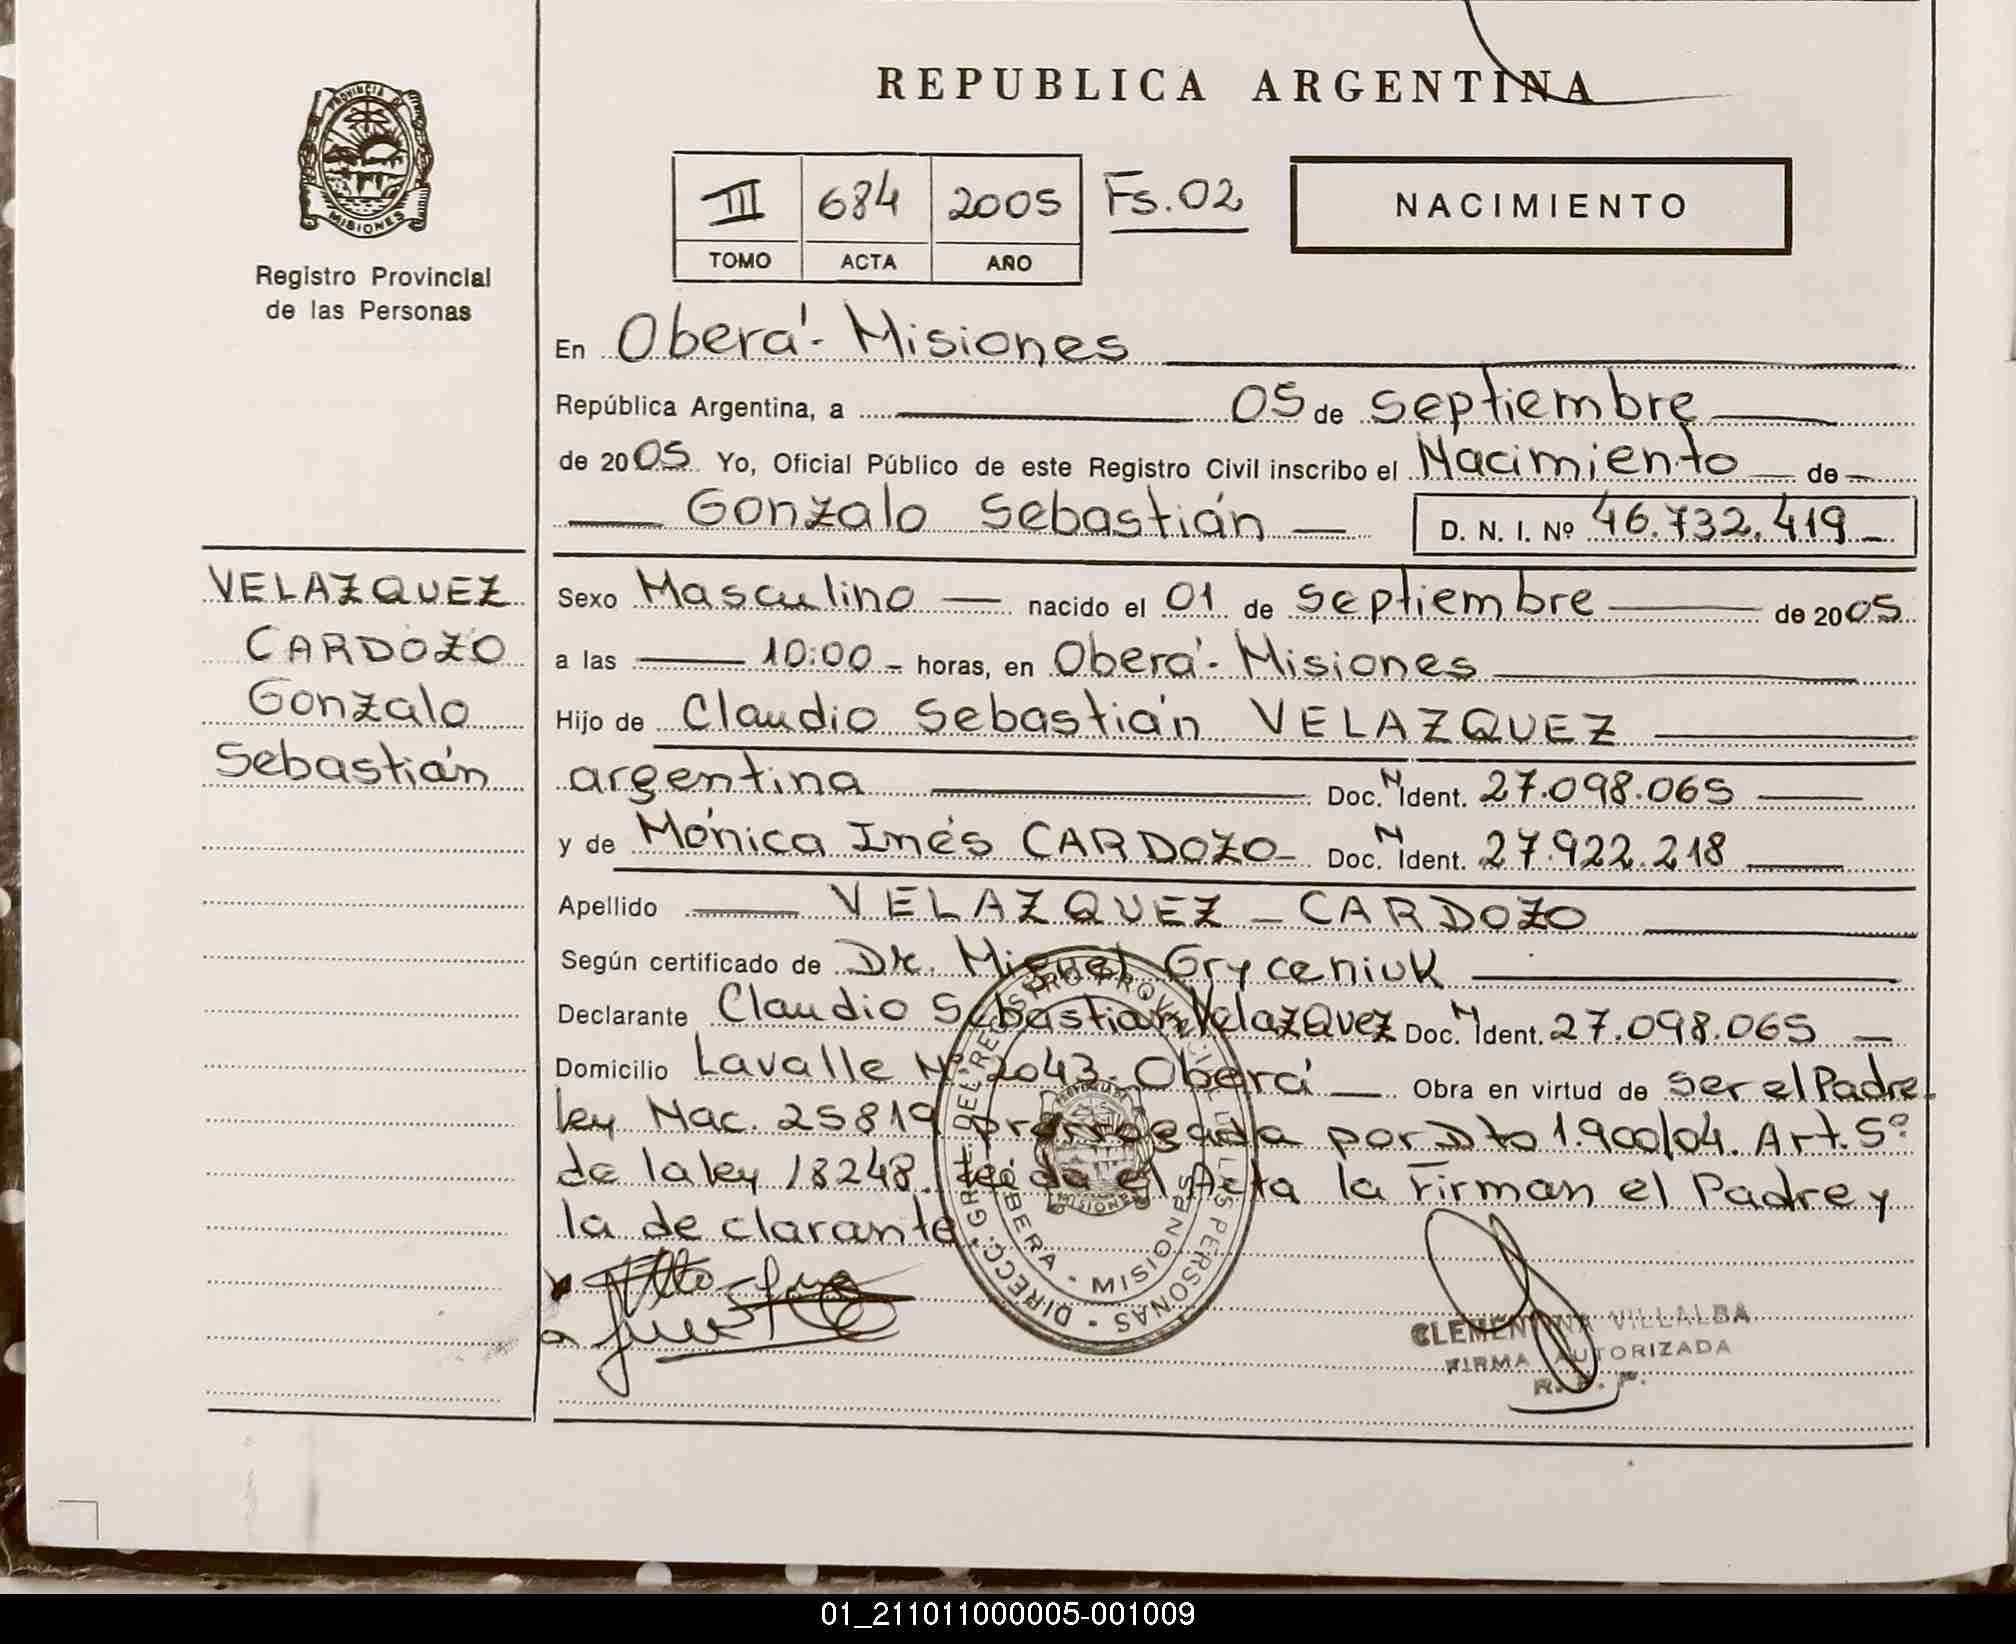 REPUBLICA ARGENTINA
PROVINCIA DE
MISIONES
Registro Provincial
de las Personas
III 684 2005 Fs. 02
TOMO ACTA AÑO
NACIMIENTO
En Oberá - Misiones
República Argentina, a 05 de Septiembre
de 2005 Yo, Oficial Público de este Registro Civil inscribo el Nacimiento de
Gonzalo Sebastián D. N. I. Nº 46.732.419
VELAZQUEZ
CARDOZO
Gonzalo
Sebastián
Sexo Masculino nacido el 01 de Septiembre de 2005
a las 10:00 horas, en Oberá - Misiones
Hijo de Claudio Sebastián VELAZQUEZ
argentina Doc. N Ident. 27.098.065
y de Mónica Inés CARDOZO Doc. N Ident. 27.922.218
Apellido VELAZQUEZ - CARDOZO
Según certificado de Dr. Miguel Gryceniuk
Declarante Claudio Sebastian Velazquez Doc. N Ident. 27.098.065
Domicilio Lavalle Nº 2043 - Oberá Obra en virtud de ser el Padre
ley Nac. 25819 prorrogada por Dto 1.900/04. Art. 5º
de la ley 18248. leída el Acta la Firman el Padre y
la declarante
DIRECC. GRAL. DEL REGISTRO PROVINCIAL DE LAS PERSONAS
OBERA - MISIONES
PROVINCIA DE
MISIONES
CLEMENTINA VILLALBA
FIRMA AUTORIZADA
R. P. P.
01_211011000005-001009